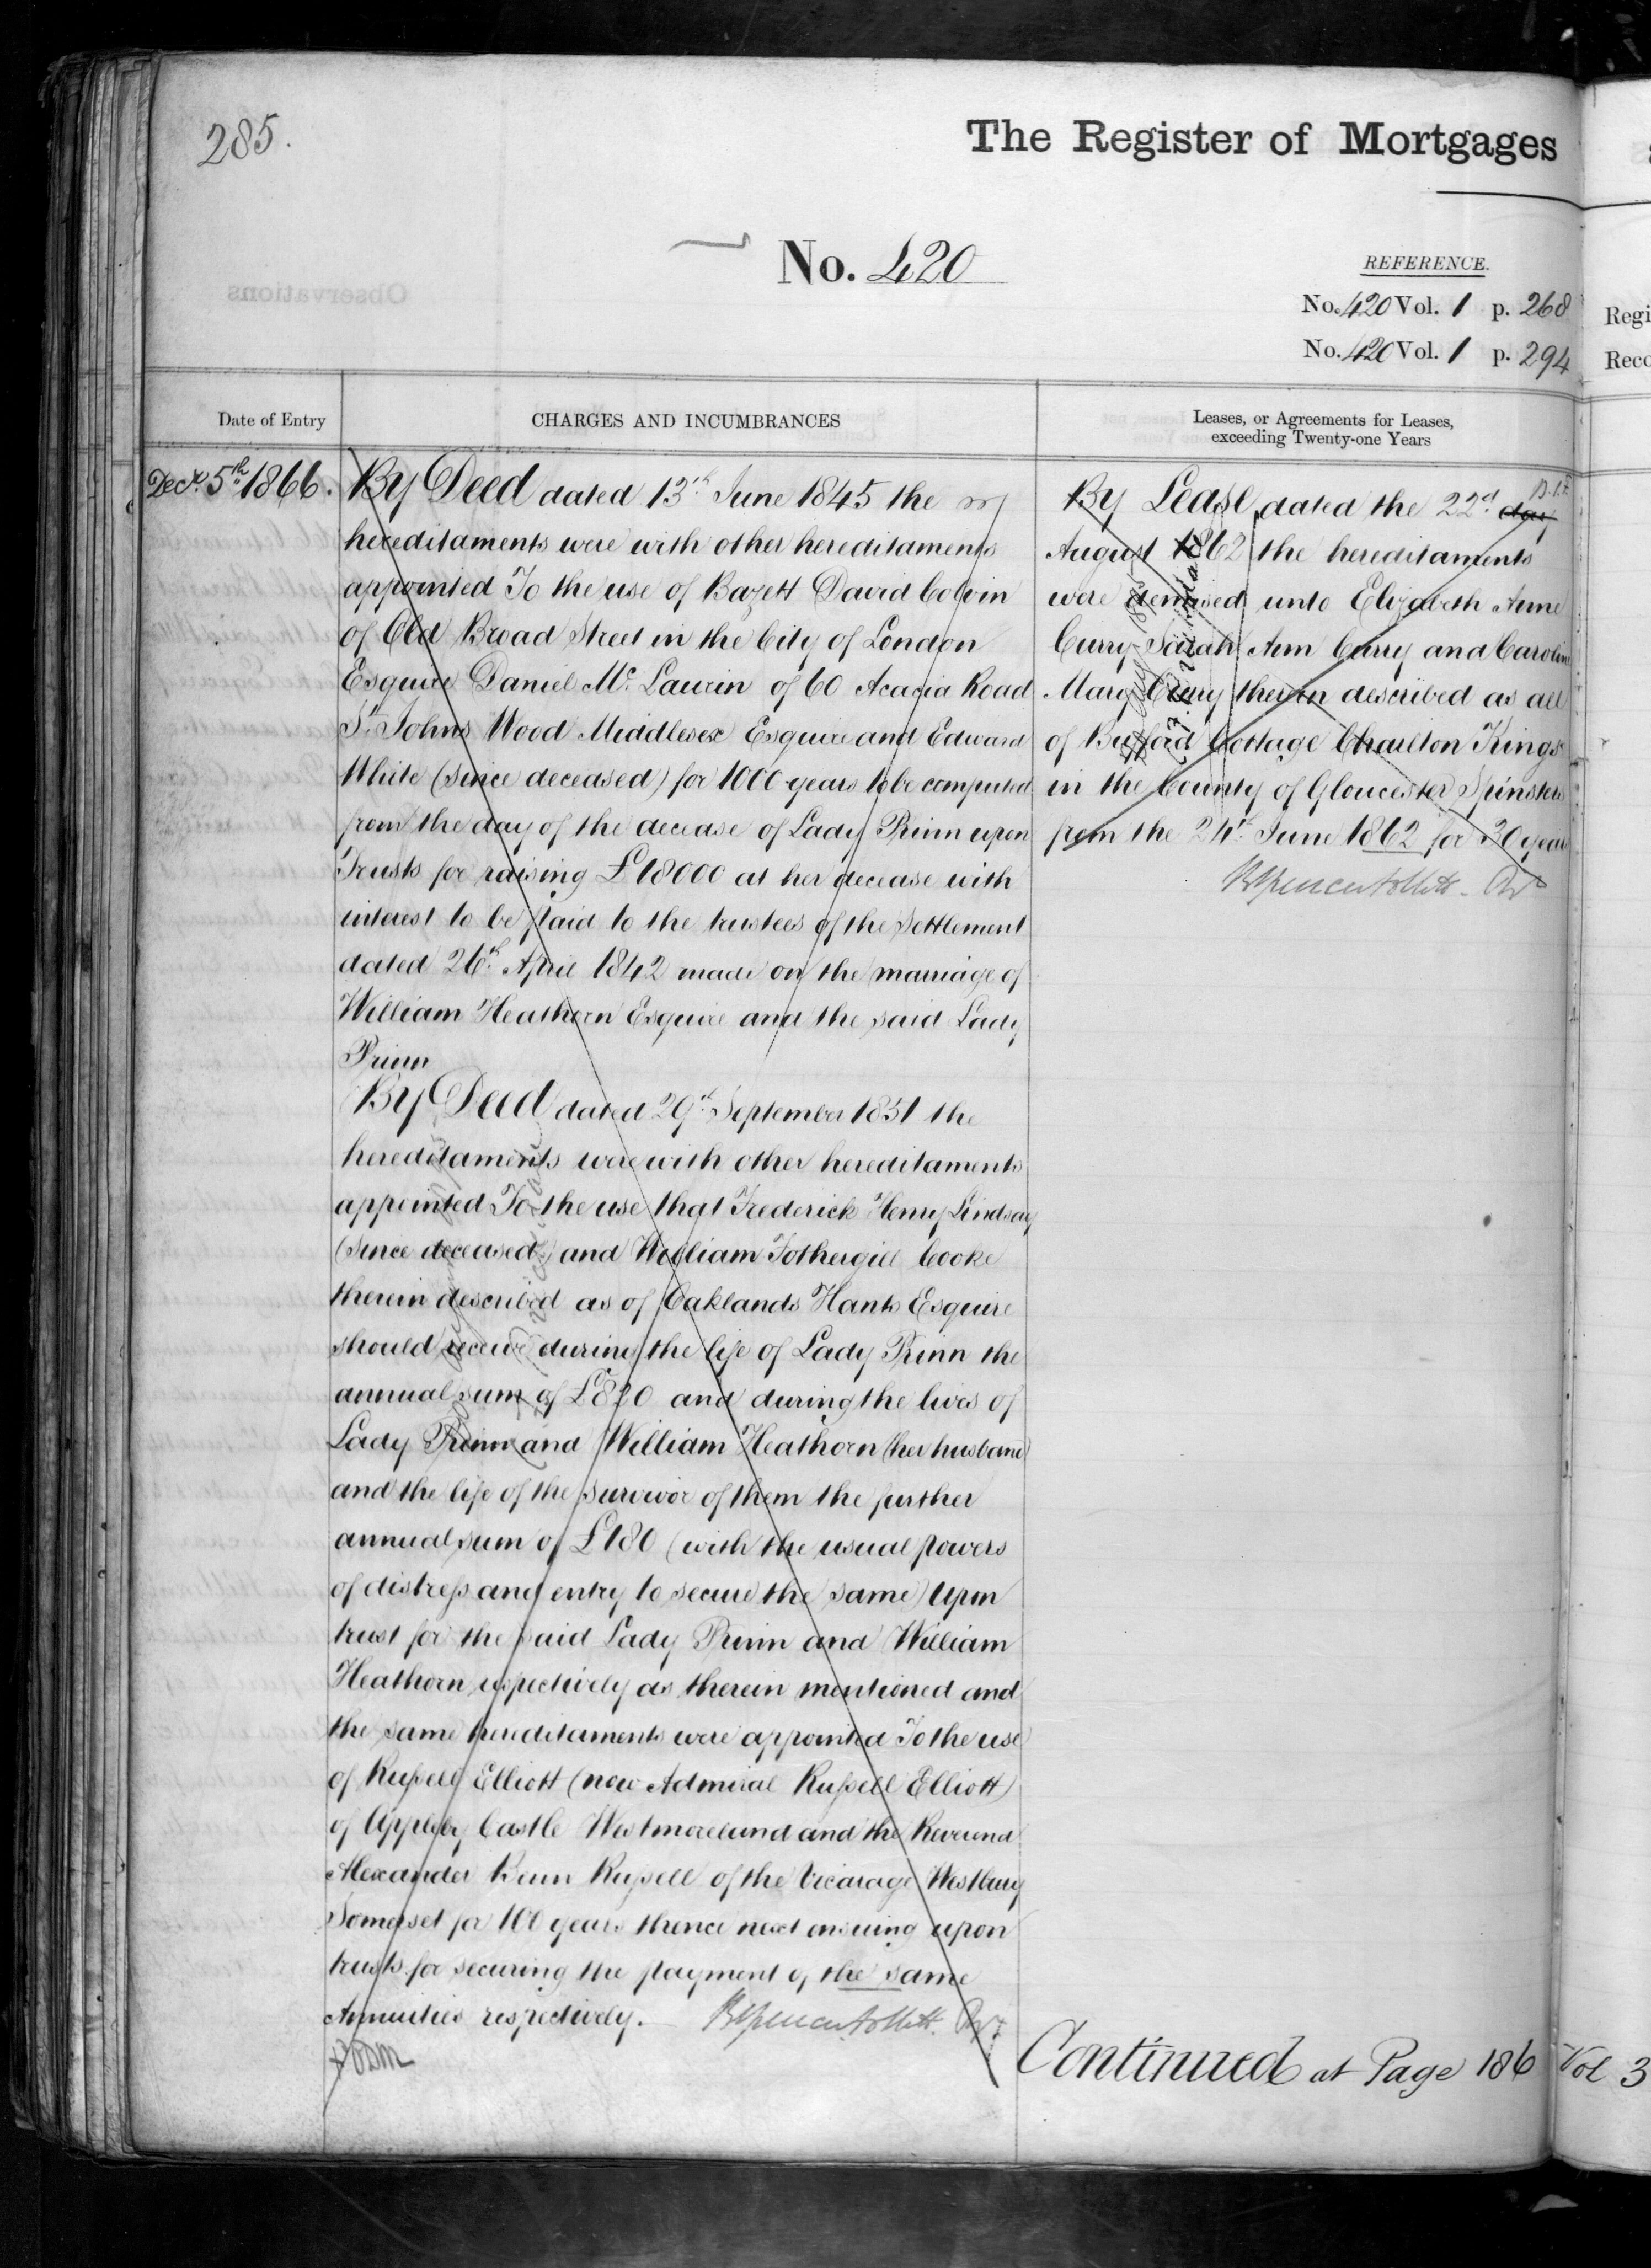 285.
The Register of Mortgages
No. 420
REFERENCE.
No. 420 Vol. 1 p. 268
No. 420 Vol. 1 p. 294
Regi
Reco
Date of Entry
CHARGES AND INCUMBRANCES
Leases, or Agreements for Leases,
exceeding Twenty-one Years
Decr. 5th 1866.
By Deed dated 13th June 1845 the
hereditaments were with other hereditaments
appointed To the use of Bazett David Colvin
of Old Broad Street in the City of London
Esquire Daniel Mc. Laurin of 60 Acacia Road
St. Johns Wood Middlesex Esquire and Edward
White (since deceased) for 1000 years to be computed
from the day of the decease of Lady Prinn upon
Trusts for raising £18000 at her decease with
interest to be paid to the trustees of the Settlement
dated 26th April 1842 made on the marriage of
William Heathorn Esquire and the said Lady
Prinn
By Deed dated 29th September 1851 the
hereditaments were with other hereditaments
appointed To the use that Frederick Henry Lindsay
(since deceased) and William Fothergill Cooke
therein described as of Oaklands Hants Esquire
should receive during the life of Lady Prinn the
annual sum of £820 and during the lives of
Lady Prinn and William Heathorn (her husband)
and the life of the survivor of them the further
annual sum of £180 (with the usual powers
of distress and entry to secure the same) Upon
trust for the said Lady Prinn and William
Heathorn respectively as therein mentioned and
the same hereditaments were appointed To the use
of Russell Elliott (now Admiral Russell Elliott)
of Appleby Castle Westmoreland and the Reverend
Alexander Benn Russell of the Vicarage Westbury
Somerset for 100 years thence next ensuing upon
trusts for securing the payment of the same
Annuities respectively.
By Lease dated the 22d day
August 1862 the hereditaments
were demised unto Elizabeth Anne
Curry Sarah Ann Curry and Caroline
Mary Curry therein described as all
of Bufford Cottage Charlton Kings
in the County of Gloucester Spinsters
from the 24th June 1862 for 30 years
Continued at Page 186 Vol 3